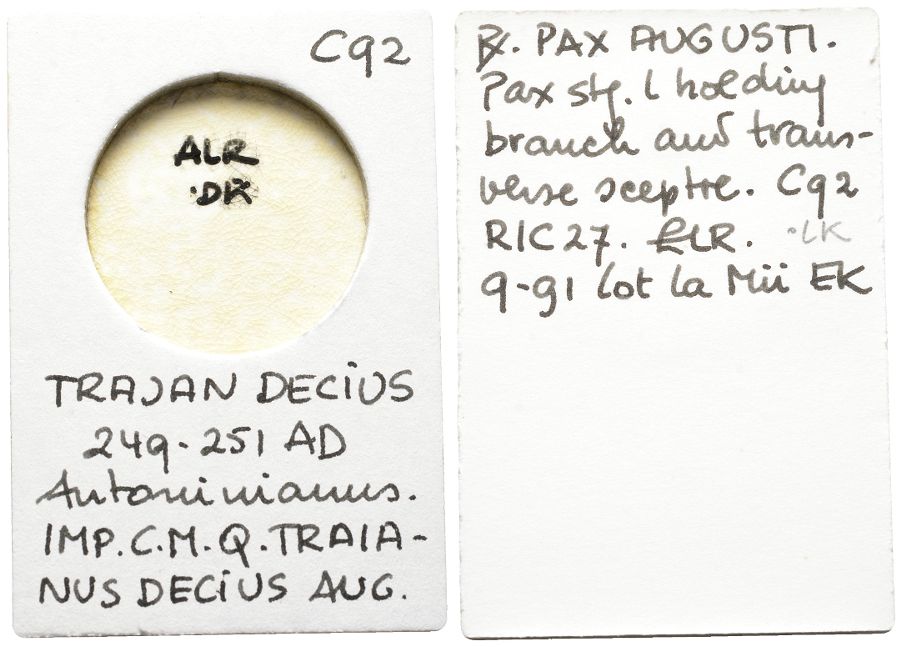 C92
ALR
·DK
TRAJAN DECIUS
249-251 AD
Antoninianus.
IMP.C.M.Q.TRAIA-
NUS DECIUS AUG.
PAX AUGUSTI.
Pax stg. l holding
branch and trans-
verse sceptre. C92
RIC 27. LR. ·LK
9-91 lot La Mii EK